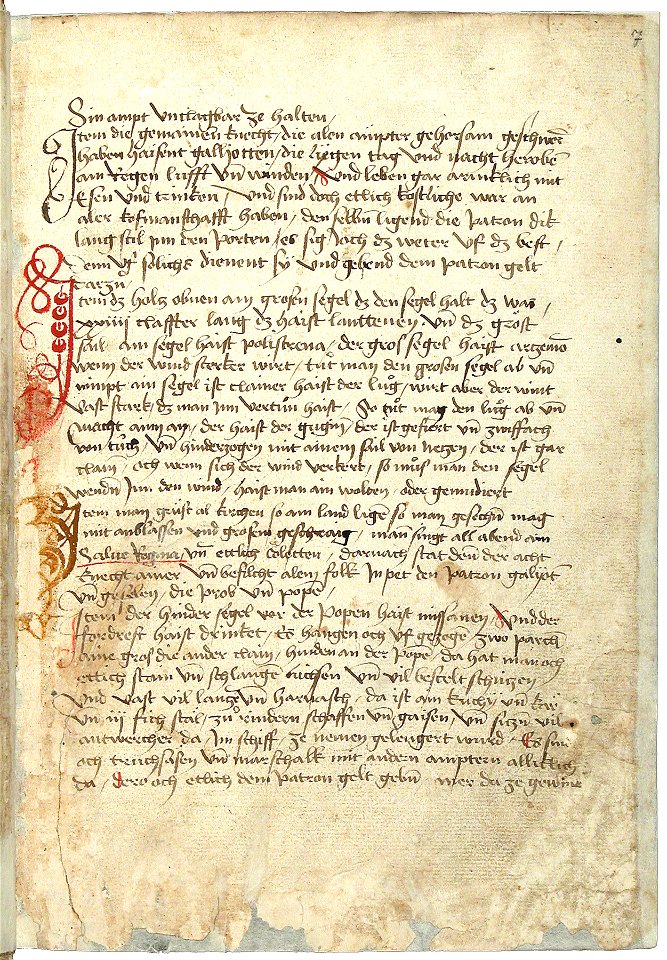 7
Sin ampt vnclagbar ze halten /
Item die gemainen knecht / die alen ampter gehorsam geschwen
haben haissent galliotten / die ligen tag vnd nacht
am Regen lufft vnd winden / vnd leben gar armklich mit
Esen vnd trinken / vnd sind doch etlich kostliche war an
aler kofmanschafft haben / den selbin ligend die patron dik
lang stil jm den porten / es sig joch dz weter vf dz best /
denn vf solichs dienent sy vnd gebend dem patron gelt
darzu
Item dz holz obnen am grosen segel dz den segel halt dz was /
xxviiij claffter lang dz haist lanttenen vn dz gröst
sail am segel haist polistrena / der gros segel haist artzemo
wenn der wind sterker wirt / tůt man den grosen segel ab vn
nimpt ain segel ist clainer haist der lůg / wirt aber der wint
vast stark / dz man jm vertun haist / So tůt man den lůg ab vn
macht ainn an / der haist der gugin / der ist gefiert vn zwiffach
von tůch / vn hinderzogen mit ainem sail von netzen / der ist gar
clain / och wenn sich der wind verkert / so můs man den segel
wendn jm den wind / haist man am wolben / oder gemudiert
Item man grüst al kirchen so am land ligen so man gesechn mag
mit anblassen vnd grosem geschraig / man singt all abend ain
Salue Regina / vn ettlich coletten / darnach stat denn der acht
knecht ainer vn befilcht alem folk jn pet den patron galiot
vn geselen / die prob vn pope /
Item der hinder segel vor der popen haist missanen / vnd der
fordrest haist drinket / Es hangen och vf gezoge zwo parchen
aine gros die ander clain / hinden an der pope / da hat man och
ettlich stain vn schlangen büchsen vn vil bestelt schützen
vnd vast vil lanze vn harnasch / da ist ain kuchy vn
vn iij fich stal / zu rindern schaffen vn gaisen / vn sitzn vil
antwercher da jm schiff / ze nemen gelengert wurd / Es sin
och truchsäsen vn marschalk mit andern amptern alliklich
da / dero och etlich dem patron gelt gebn mer da ze gewine